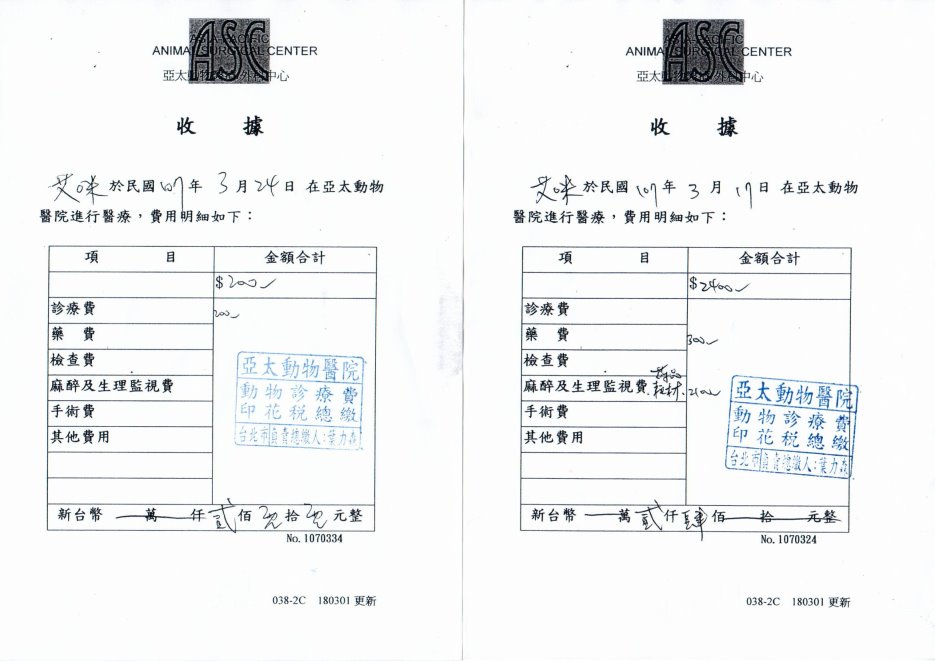 ASC
ASIA PACIFIC
ANIMAL SURGICAL CENTER
亞太動物 外科中心
收 據
艾咪 於民國 107 年 3 月 24 日 在亞太動物
醫院進行醫療，費用明細如下：
項 目 金額合計
$200
診療費 200
藥 費
檢查費
麻醉及生理監視費
手術費
其他費用
亞太動物醫院
動物診療費
印花稅總繳
台北市負責總繳人：葉力森
新台幣 萬 仟 貳 佰 零 拾 零 元整
No. 1070334
038-2C 180301 更新
ASC
ASIA PACIFIC
ANIMAL SURGICAL CENTER
亞太動物 外科中心
收 據
艾咪 於民國 107 年 3 月 17 日 在亞太動物
醫院進行醫療，費用明細如下：
項 目 金額合計
$2400
診療費
藥 費 300
檢查費
麻醉及生理監視費 2100
手術費
其他費用
亞太動物醫院
動物診療費
印花稅總繳
台北市負責總繳人：葉力森
新台幣 萬 貳 仟 肆 佰 拾 元整
No. 1070324
038-2C 180301 更新